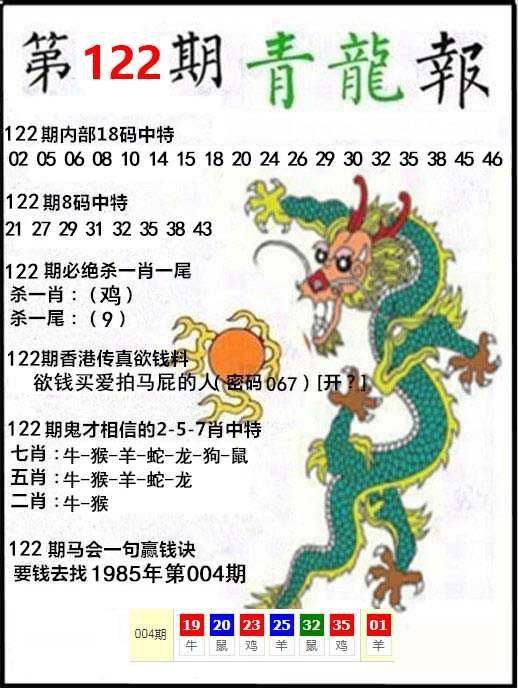 第122期 青龍報
122期内部18码中特
02 05 06 08 10 14 15 18 20 24 26 29 30 32 35 38 45 46
122期8码中特
21 27 29 31 32 35 38 43
122期必绝杀一肖一尾
杀一肖：（鸡）
杀一尾：（9）
122期香港传真欲钱料
欲钱买爱拍马屁的人（密码067）[开？]
122期鬼才相信的2-5-7肖中特
七肖：牛-猴-羊-蛇-龙-狗-鼠
五肖：牛-猴-羊-蛇-龙
二肖：牛-猴
122期马会一句赢钱诀
要钱去找1985年第004期
004期 19 20 23 25 32 35 01
牛 鼠 鸡 羊 鼠 鸡 羊